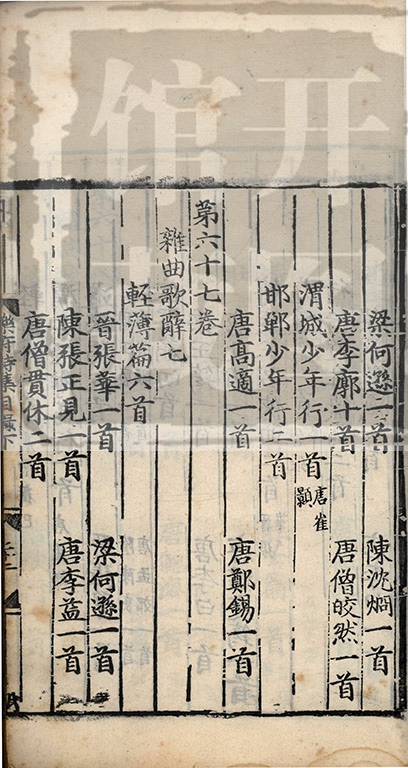 梁何遜一首　陳沈烱一首
唐李廓十首　唐僧皎然一首
渭城少年行一首　唐崔顥
邯鄲少年行二首
唐高適一首　唐鄭錫一首
第六十七卷
雜曲歌辭七
輕薄篇六首
晉張華一首　梁何遜一首
陳張正見一首　唐李益一首
唐僧貫休二首
樂府詩集目錄下